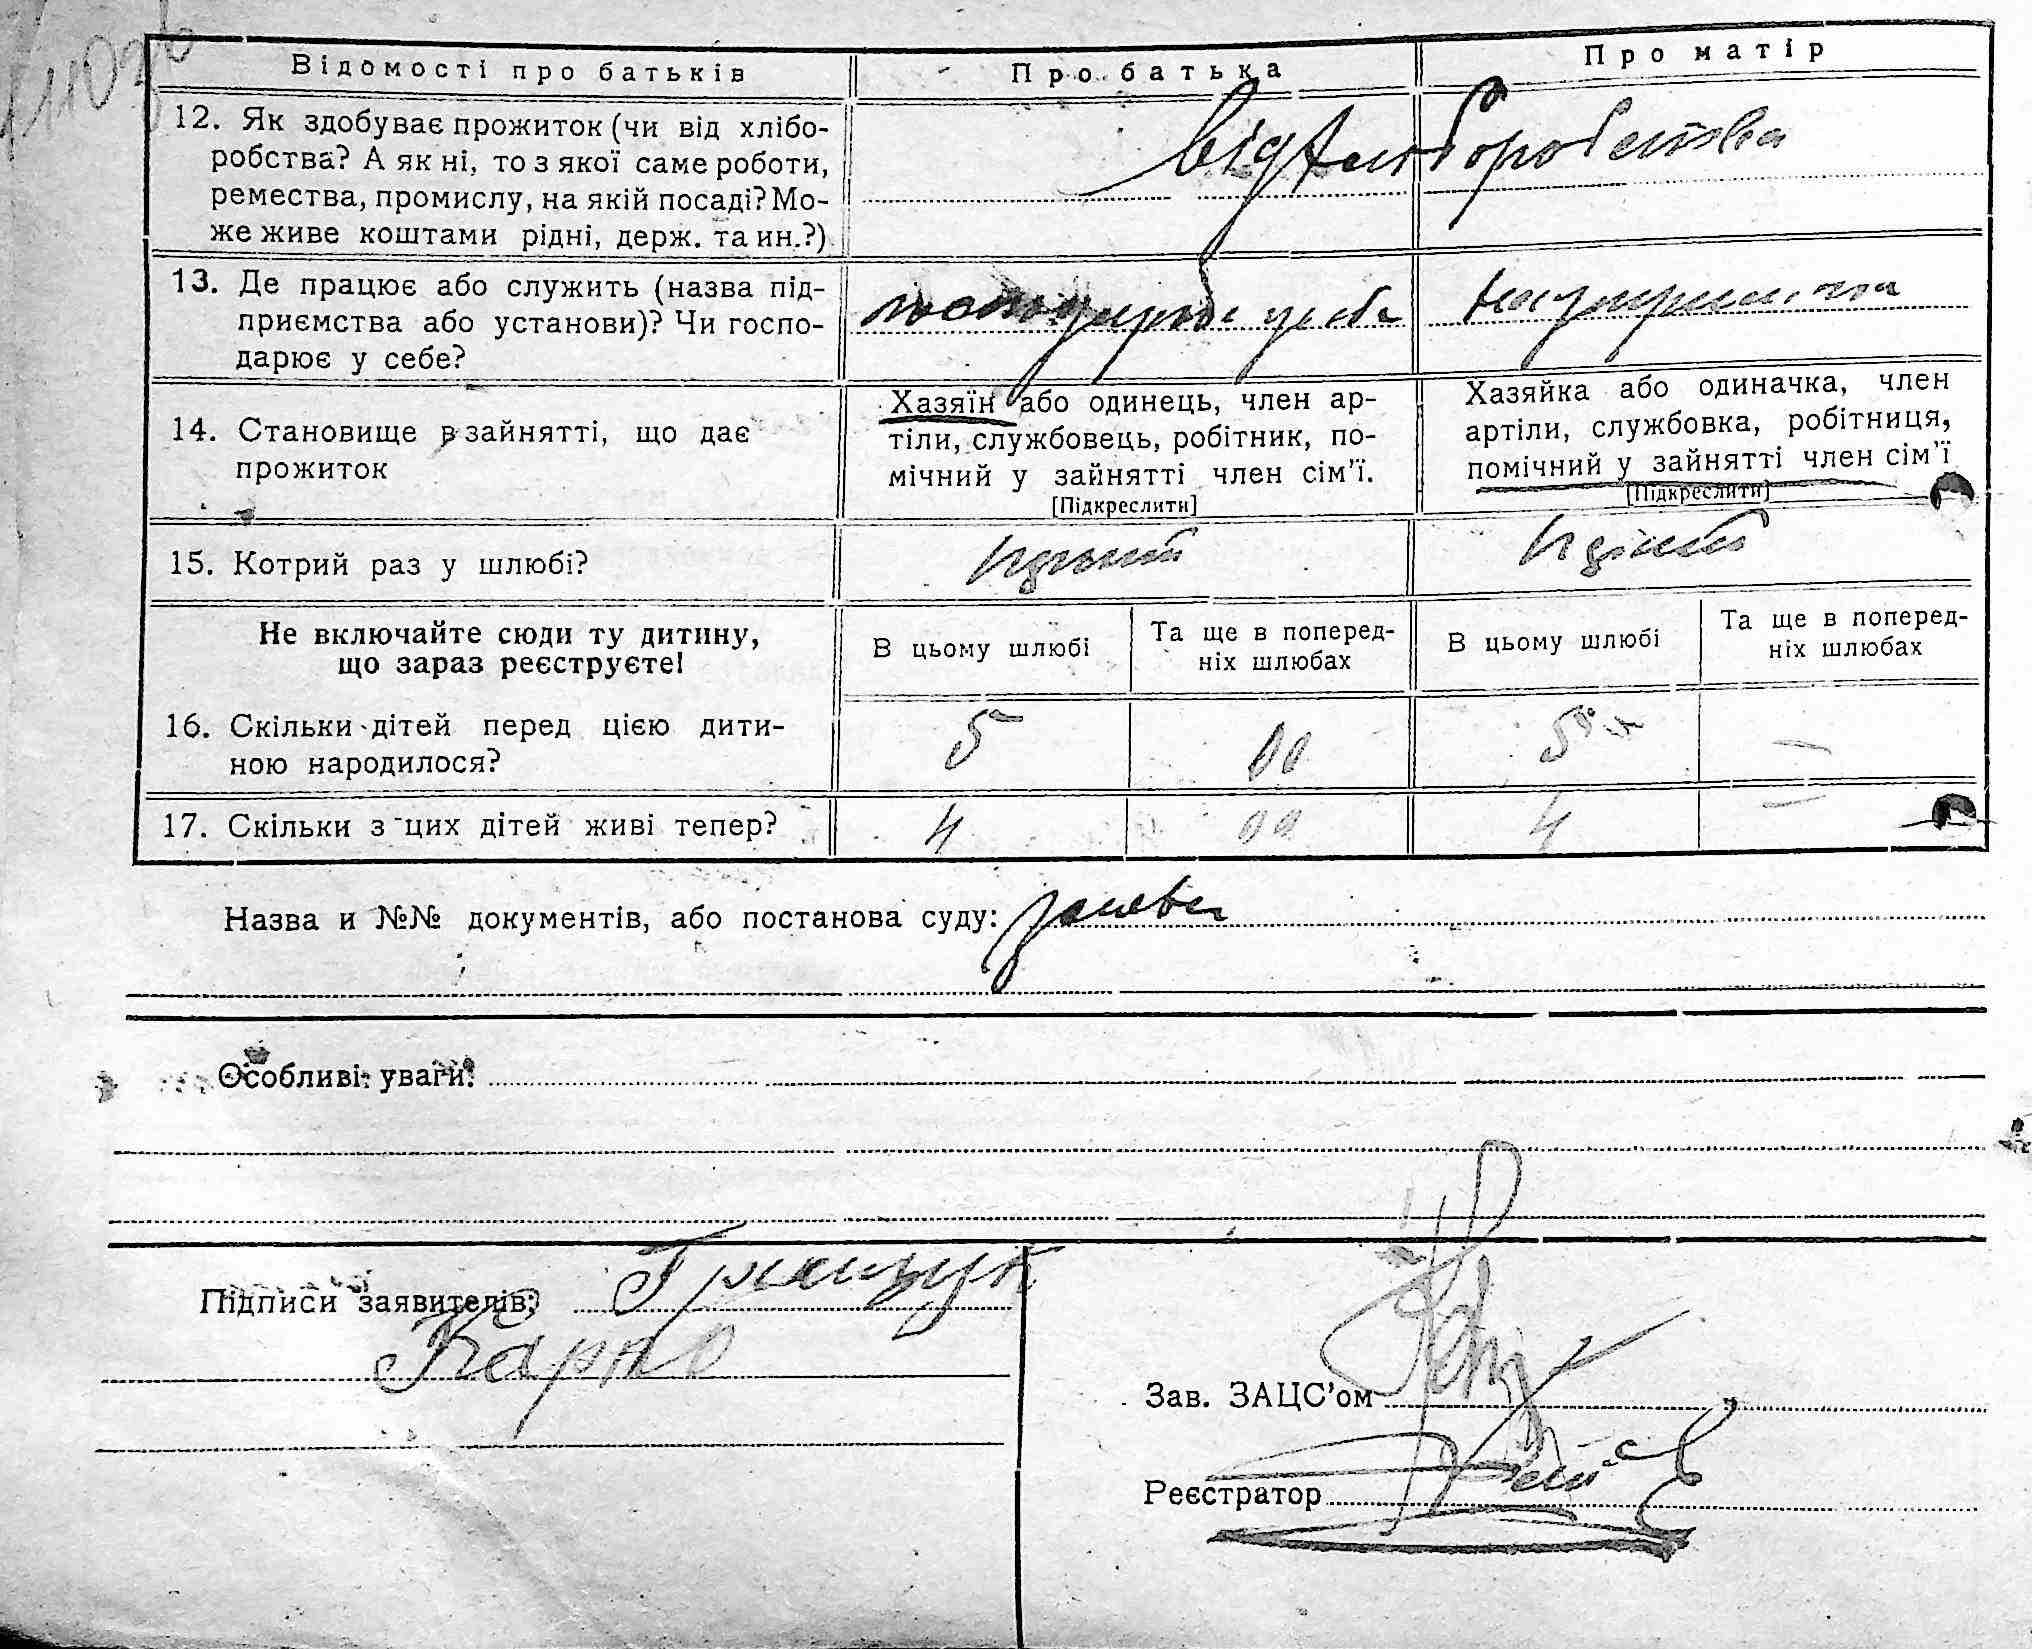 Відомості про батьків Про батька Про матір
12. Як здобуває прожиток (чи від хлібо-
робства? А як ні, то з якої саме роботи,
ремества, промислу, на якій посаді? Мо-
же живе коштами рідні, держ. та ин.?)
від хліборобства
13. Де працює або служить (назва під-
приємства або установи)? Чи госпо-
дарює у себе?
господарює у себе
14. Становище в зайнятті, що дає
прожиток
Хазяїн або одинець, член ар-
тіли, службовець, робітник, по-
мічний у зайнятті член сім'ї.
[Підкреслити]
Хазяйка або одиначка, член
артіли, службовка, робітниця,
помічний у зайнятті член сім'ї
[Підкреслити]
15. Котрий раз у шлюбі?
Не включайте сюди ту дитину,
що зараз реєструєте!
В цьому шлюбі
Та ще в поперед-
ніх шлюбах
В цьому шлюбі
Та ще в поперед-
ніх шлюбах
16. Скільки дітей перед цією дити-
ною народилося?
5 5 —
17. Скільки з цих дітей живі тепер? 4 4 —
Назва и №№ документів, або постанова суду:
Особливі уваги:
Підписи заявителів: Грищук
Карпо
Зав. ЗАЦС'ом
Реєстратор